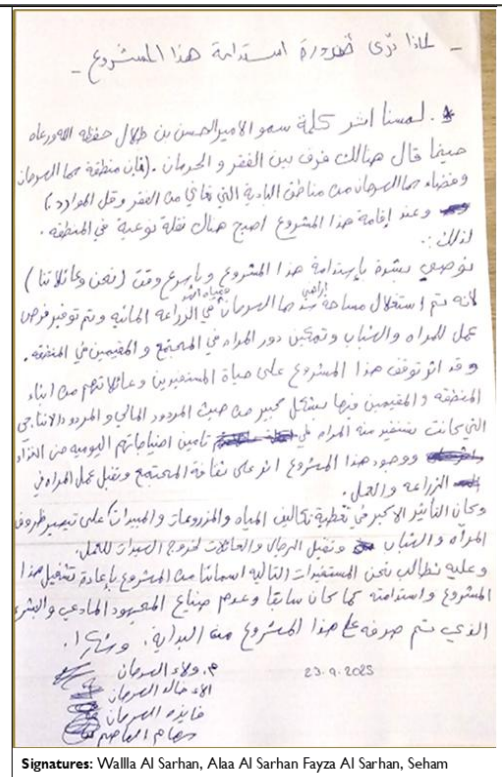 - لماذا نرى ضرورة استدامة هذا المشروع -
لمسنا اثر كلمة سمو الامير الحسن بن طلال حفظه الله ورعاه
حينما قال هنالك فرق بين الفقر و الحرمان . (فإن منطقة حما السرحان
وقضاء حما السرحان من مناطق البادية التي تعاني من الفقر و قل الموارد)
وعند إقامة هذا المشروع اصبح هناك نقلة نوعية في المنطقه .
لذلك :.
نوصي بشدة بإستدامة هذا المشروع و بإسرع وقت (نحن وعائلاتنا)
لأنه تم إستغلال مساحة اراضي حما السرحان في الزراعه المائيه وتم توفير فرص
عمل للمراه والشباب وتمكين دور المراه في المجتمع و المقيمين في المنطقه .
و قد اثر توقف هذا المشروع على حياة المستفيدين و عائلاتهم من ابناء
المنطقه و المقيمين فيها بشكل كبير من حيث المردود المالي و المردود الانتاجي
التي كانت تستفيد منه المراه في تامين احتياجاتهم اليوميه من الغذاء
ووجود هذا المشروع اثر على ثقافة المجتمع و تقبل عمل المراه في
الزراعه والعمل .
وكان التأثير الاكبر في تغطية تكاليف المياه والمزروعات و المبيدات على تيسير ظروف
المرآه والشباب وتقبل الرجال والعائلات لخروج السيدات للعمل .
وعليه نطالب نحن المستفيدات التاليه اسمائنا من المشروع بإعادة تشغيل هذا
المشروع و استدامته كما كان سابقا وعدم ضياع المجهود المادي والبشري
الذي تم صرفه على هذا المشروع من البداية . وشكرا .
23.9.2025
م. ولاء السرحان
الاء خالد السرحان
فايزه السرحان
سهام
Signatures: Wallla Al Sarhan, Alaa Al Sarhan Fayza Al Sarhan, Seham